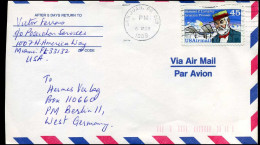 AFTER 5 DAYS RETURN TO
Victor Ferrero
c/o Poseidon Services
1007 N America Way
Miami FL 33132
U.S.A.
PM
1989
45
USAirmail
Via Air Mail
Par Avion
To
Hermes Verlag
Box 110660
PM Berlin 11,
West Germany